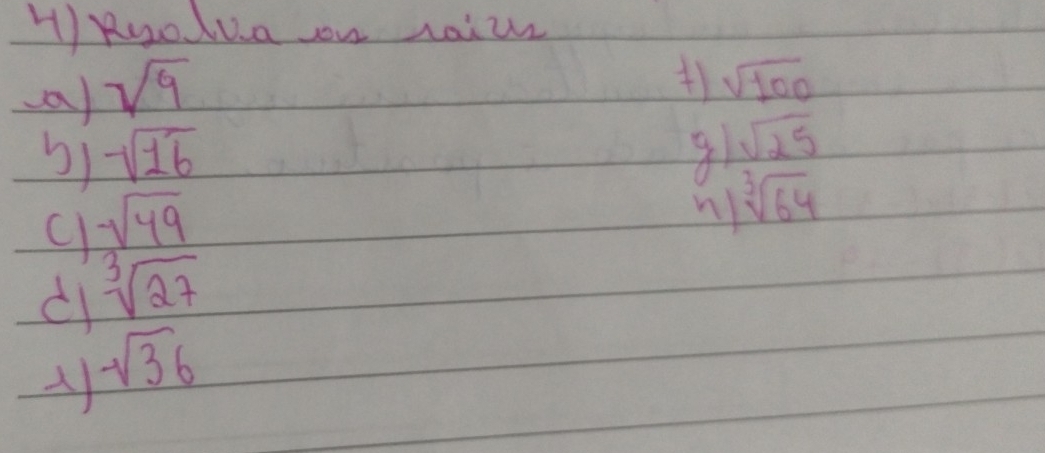 4) Resolva as raizes
a) √9
b) √16
c) √49
d) ³√27
e) √36
f) √100
g) √25
h) ³√64